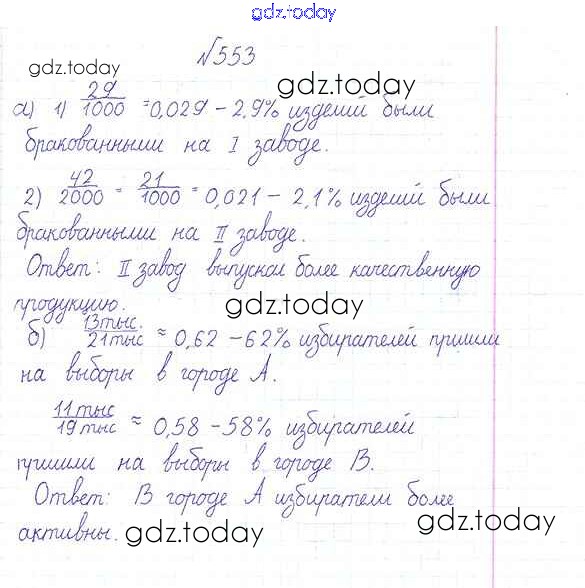 gdz.today
№553
gdz.today
gdz.today
а) 1) 29/1000 = 0,029 – 2,9% изделий были
бракованными на I заводе.
2) 42/2000 = 21/1000 = 0,021 – 2,1% изделий были
бракованными на II заводе.
Ответ: II завод выпускал более качественную
продукцию.
gdz.today
б) 13тыс./21тыс ≈ 0,62 – 62% избирателей пришли
на выборы в городе А.
11тыс/19тыс ≈ 0,58 – 58% избирателей
пришли на выборы в городе В.
Ответ: В городе А избиратели более
активны.
gdz.today
gdz.today